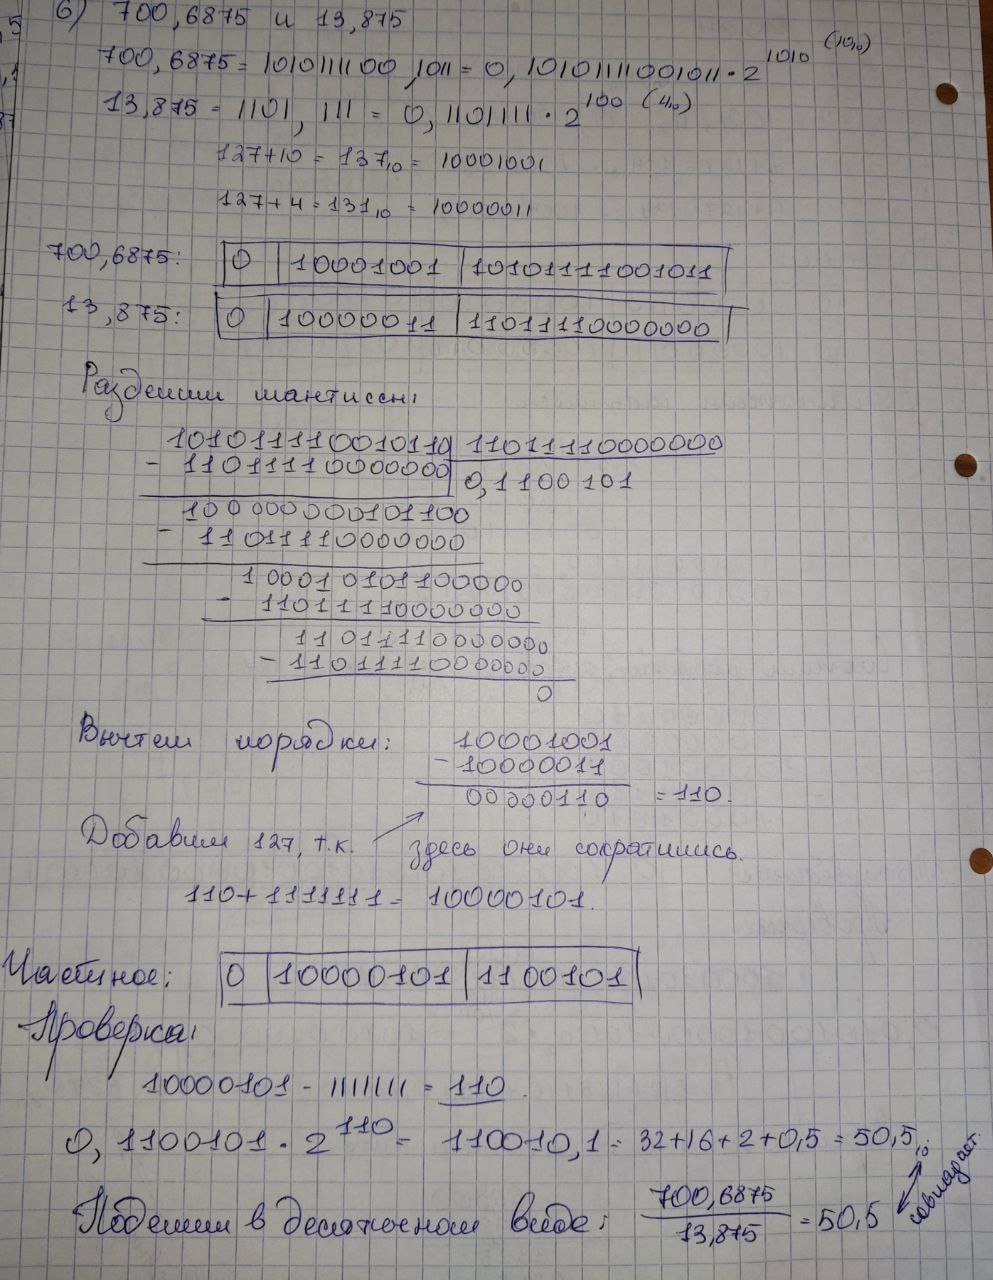 б) 700,6875 и 13,875
700,6875 = 1010111100,1011 = 0,10101111001011 · 2^1010 (10₁₀)
13,875 = 1101,111 = 0,1101111 · 2^100 (4₁₀)
127+10 = 137₁₀ = 10001001
127+4 = 131₁₀ = 10000011
700,6875: 0 10001001 10101111001011
13,875: 0 10000011 11011110000000
Разделим мантиссы:
101011110010110 11011110000000
- 11011110000000 0,1100101
100000000101100
- 11011110000000
100010101100000
- 11011110000000
11011110000000
- 11011110000000
0
Вычтем порядки: 10001001
- 10000011
00000110 = 110.
Добавим 127, т.к. здесь они сократились.
110 + 1111111 = 10000101.
Частное: 0 10000101 1100101
Проверка:
10000101 - 1111111 = 110.
0,1100101 · 2^110 = 110010,1 = 32+16+2+0,5 = 50,5₁₀
совпадает.
Поделим в десятичном виде: 700,6875 / 13,875 = 50,5